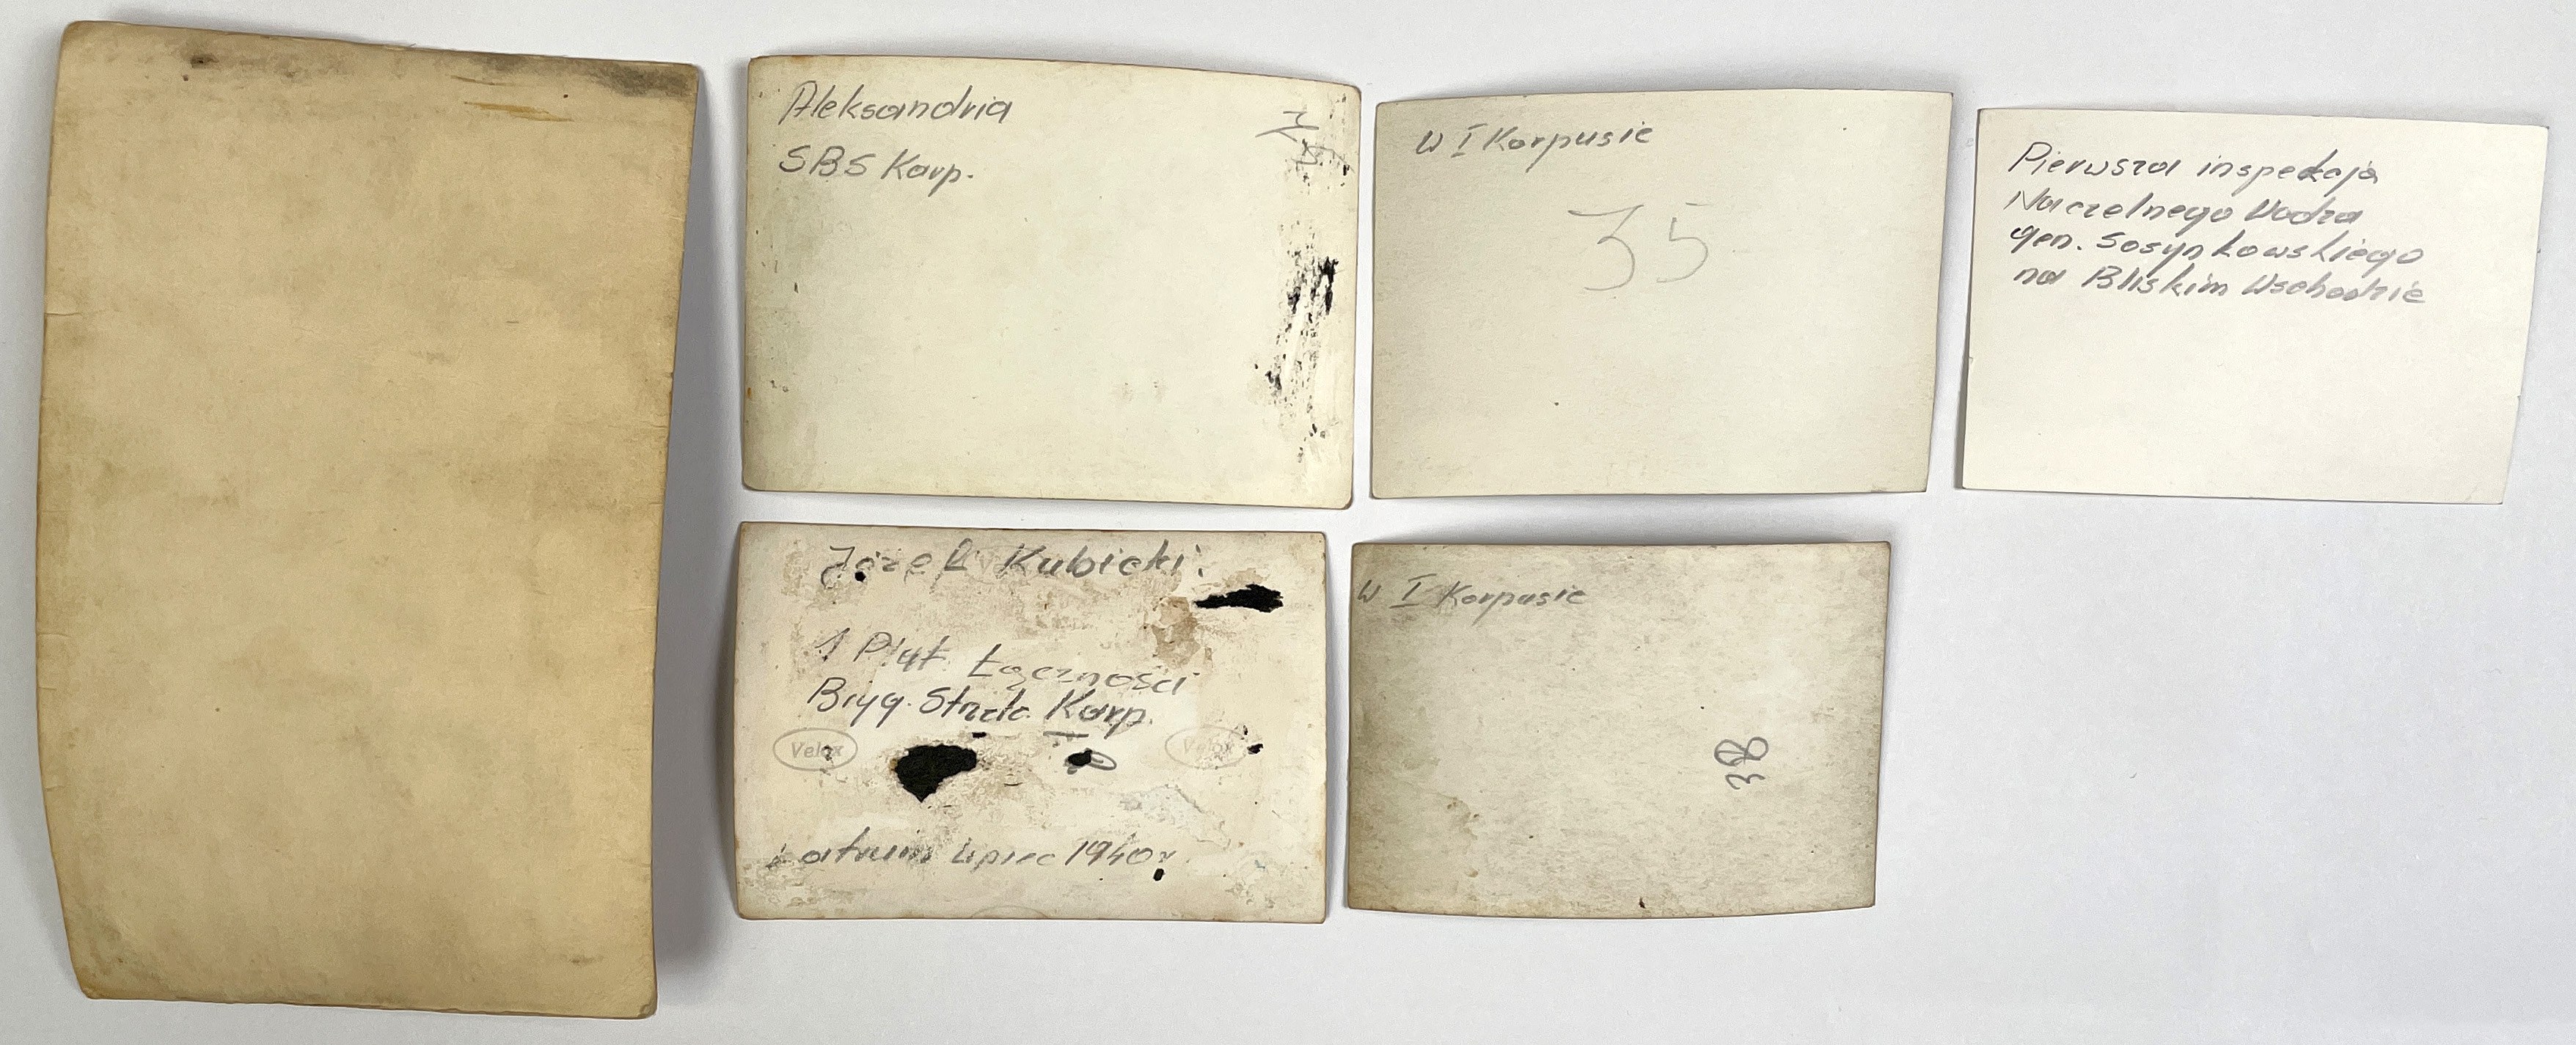 Aleksandria
SBS Karp.
W I Korpusie
35
Pierwsza inspekcja
Naczelnego Wodza
gen. Sosynkowskiego
na Bliskim Wschodzie
Józef Kubicki
1 Plut. Łączności
Bryg. Strzelc. Karp.
Velox Velox
Latrun lipiec 1940r
W I Korpusie
38